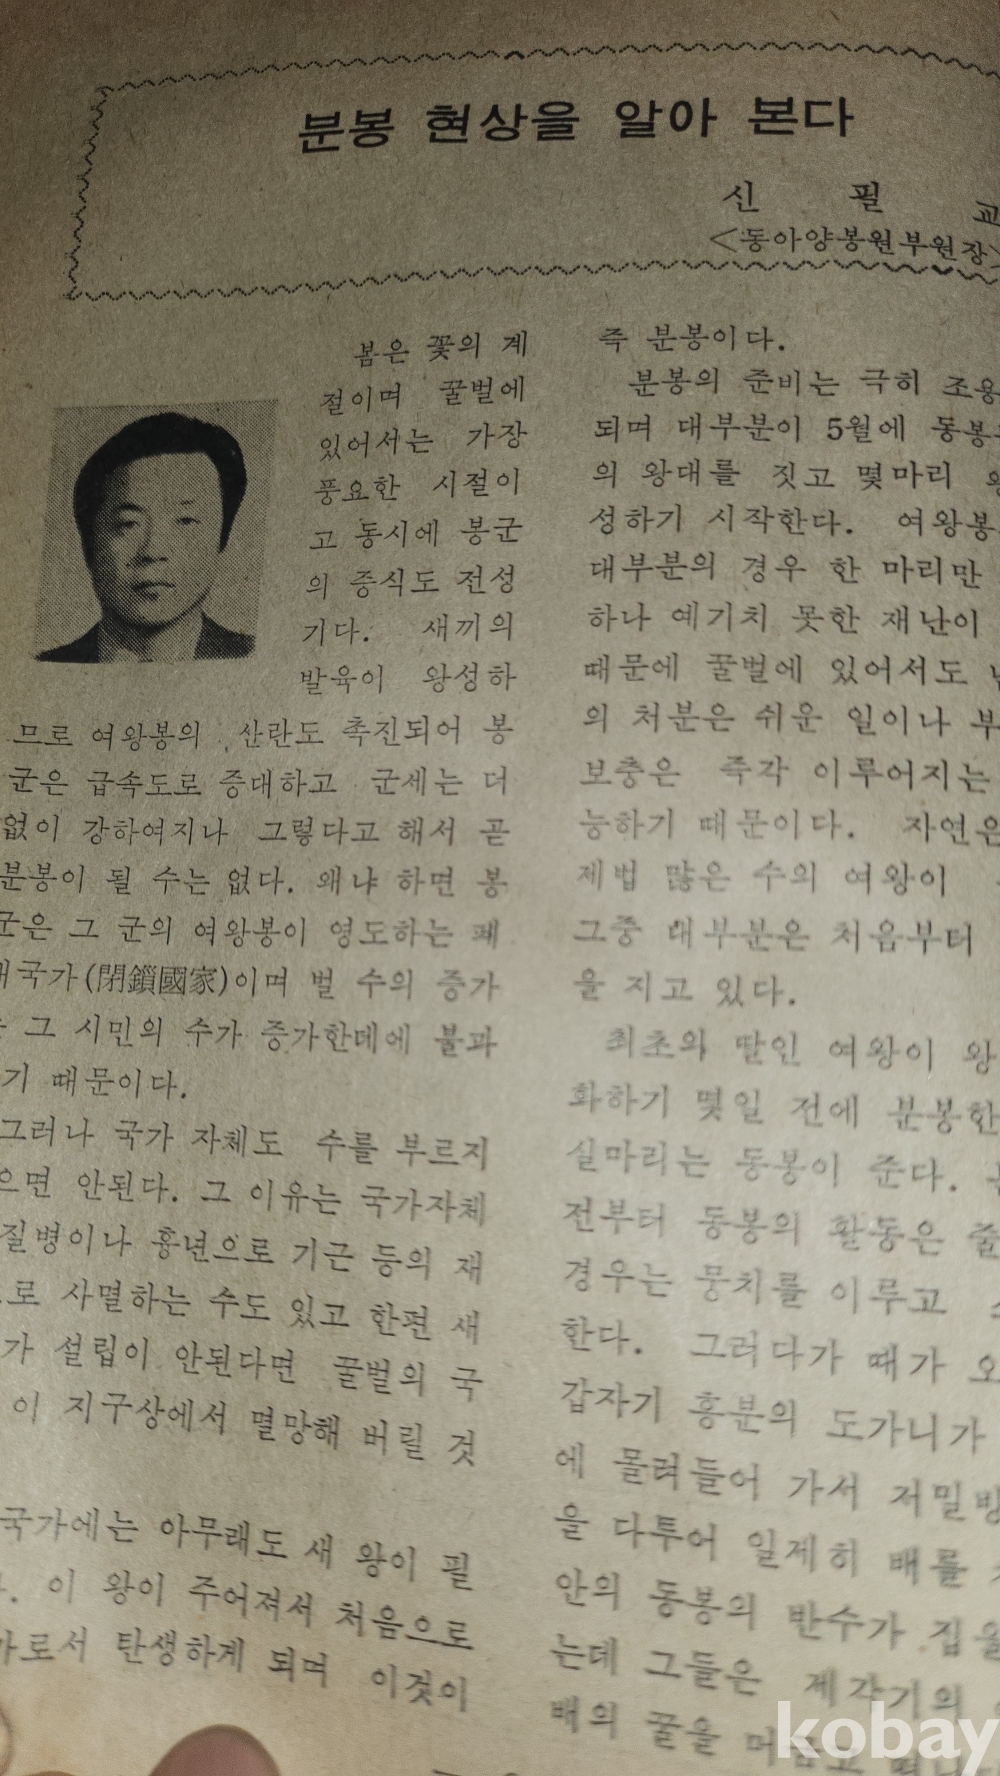 분봉 현상을 알아 본다
신 필 교
<동아양봉원부원장>
봄은 꽃의 계
절이며 꿀벌에
있어서는 가장
풍요한 시절이
고 동시에 봉군
의 증식도 전성
기다. 새끼의
발육이 왕성하
므로 여왕봉의 산란도 촉진되어 봉
군은 급속도로 증대하고 군세는 더
없이 강하여지나 그렇다고 해서 곧
분봉이 될 수는 없다. 왜냐 하면 봉
군은 그 군의 여왕봉이 영도하는 폐
쇄국가(閉鎖國家)이며 벌 수의 증가
그 시민의 수가 증가한데에 불과
기 때문이다.
그러나 국가 자체도 수를 부르지
으면 안된다. 그 이유는 국가자체
질병이나 흉년으로 기근 등의 재
로 사멸하는 수도 있고 한편 새
가 설립이 안된다면 꿀벌의 국
이 지구상에서 멸망해 버릴 것
국가에는 아무래도 새 왕이 필
. 이 왕이 주어져서 처음으로
가로서 탄생하게 되며 이것이
즉 분봉이다.
분봉의 준비는 극히 조용
되며 대부분이 5월에 동봉
의 왕대를 짓고 몇마리
성하기 시작한다. 여왕봉
대부분의 경우 한 마리만
하나 예기치 못한 재난이
때문에 꿀벌에 있어서도
의 처분은 쉬운 일이나 부
보충은 즉각 이루어지는
능하기 때문이다. 자연은
제법 많은 수의 여왕이
그중 대부분은 처음부터
을 지고 있다.
최초의 딸인 여왕이 왕
화하기 몇일 전에 분봉한
실마리는 동봉이 준다.
전부터 동봉의 활동은 줄
경우는 뭉치를 이루고
한다. 그러다가 때가 오
갑자기 흥분의 도가니가
에 몰려들어 가서 저밀방
을 다투어 일제히 배를
안의 동봉의 반수가 집을
는데 그들은 제각기의
배의 꿀을 머금고
kobay